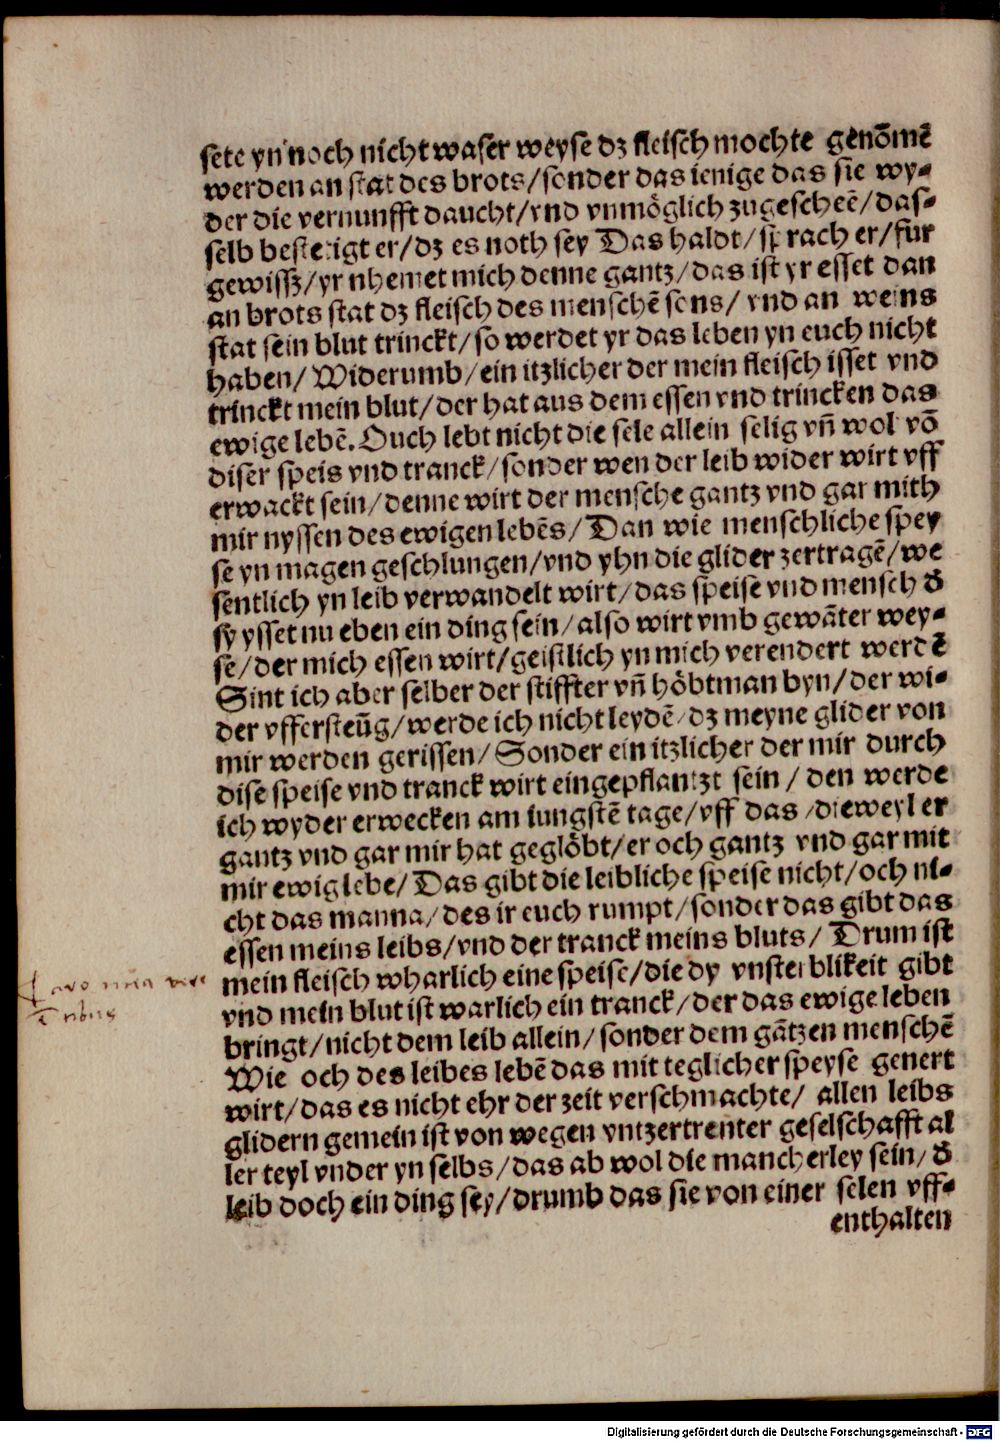 sete yn noch nicht waser weyse dz fleisch mochte genōmē
werden an stat des brots/sonder das ienige das sie wy-
der die vernunfft daucht/vnd vnmöglich zugescheē/das-
selb bestetigt er/dz es noth sey Das haldt/sprach er/fur
gewissz/yr nhemet mich denne gantz/das ist yr esset dan
an brots stat dz fleisch des menschē sons/ vnd an weins
stat sein blut trinckt/so werdet yr das leben yn euch nicht
haben/ Widerumb/ein itzlicher der mein fleisch isset vnd
trinckt mein blut/der hat aus dem essen vnd trincken das
ewige lebē. Ouch lebt nicht die sele allein selig vn̄ wol vō
diser speis vnd tranck/sonder wen der leib wider wirt vff
erwackt sein/denne wirt der mensche gantz vnd gar mith
mir nyssen des ewigen lebēs/ Dan wie menschliche spey
se yn magen geschlungen/vnd yhn die glider zertragē/we
sentlich yn leib verwandelt wirt/das speise vnd mensch d̄
sy ysset nu eben ein ding sein/also wirt vmb gewāter wey-
se/der mich essen wirt/geistlich yn mich verendert werdē
Sint ich aber selber der stiffter vn̄ höbtman byn/der wi-
der vffersteūg/werde ich nicht leydē/dz meyne glider von
mir werden gerissen/ Sonder ein itzlicher der mir durch
dise speise vnd tranck wirt eingepflantzt sein / den werde
ich wyder erwecken am iungstē tage/vff das/dieweyl er
gantz vnd gar mir hat geglöbt/er och gantz vnd gar mit
mir ewig lebe/ Das gibt die leibliche speise nicht/och ni-
cht das manna/des ir euch rumpt/sonder das gibt das
essen meins leibs/vnd der tranck meins bluts/ Drum ist
mein fleisch wharlich eine speise/die dy vnsterblikeit gibt
vnd mein blut ist warlich ein tranck/der das ewige leben
bringt/nicht dem leib allein/sonder dem gātzen menschē
Wie och des leibes lebē das mit teglicher speyse genert
wirt/das es nicht ehr der zeit verschmachte/ allen leibs
glidern gemein ist von wegen vntzertrenter geselschafft al
ler teyl vnder yn selbs/das ab wol die mancherley sein/d̄
leib doch ein ding sey/drumb das sie von einer selen vff-
enthalten
Caro mea
Digitalisierung gefördert durch die Deutsche Forschungsgemeinschaft - DFG